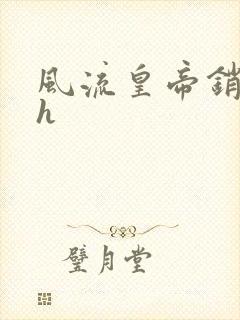 風流皇帝銷
h
璧月堂